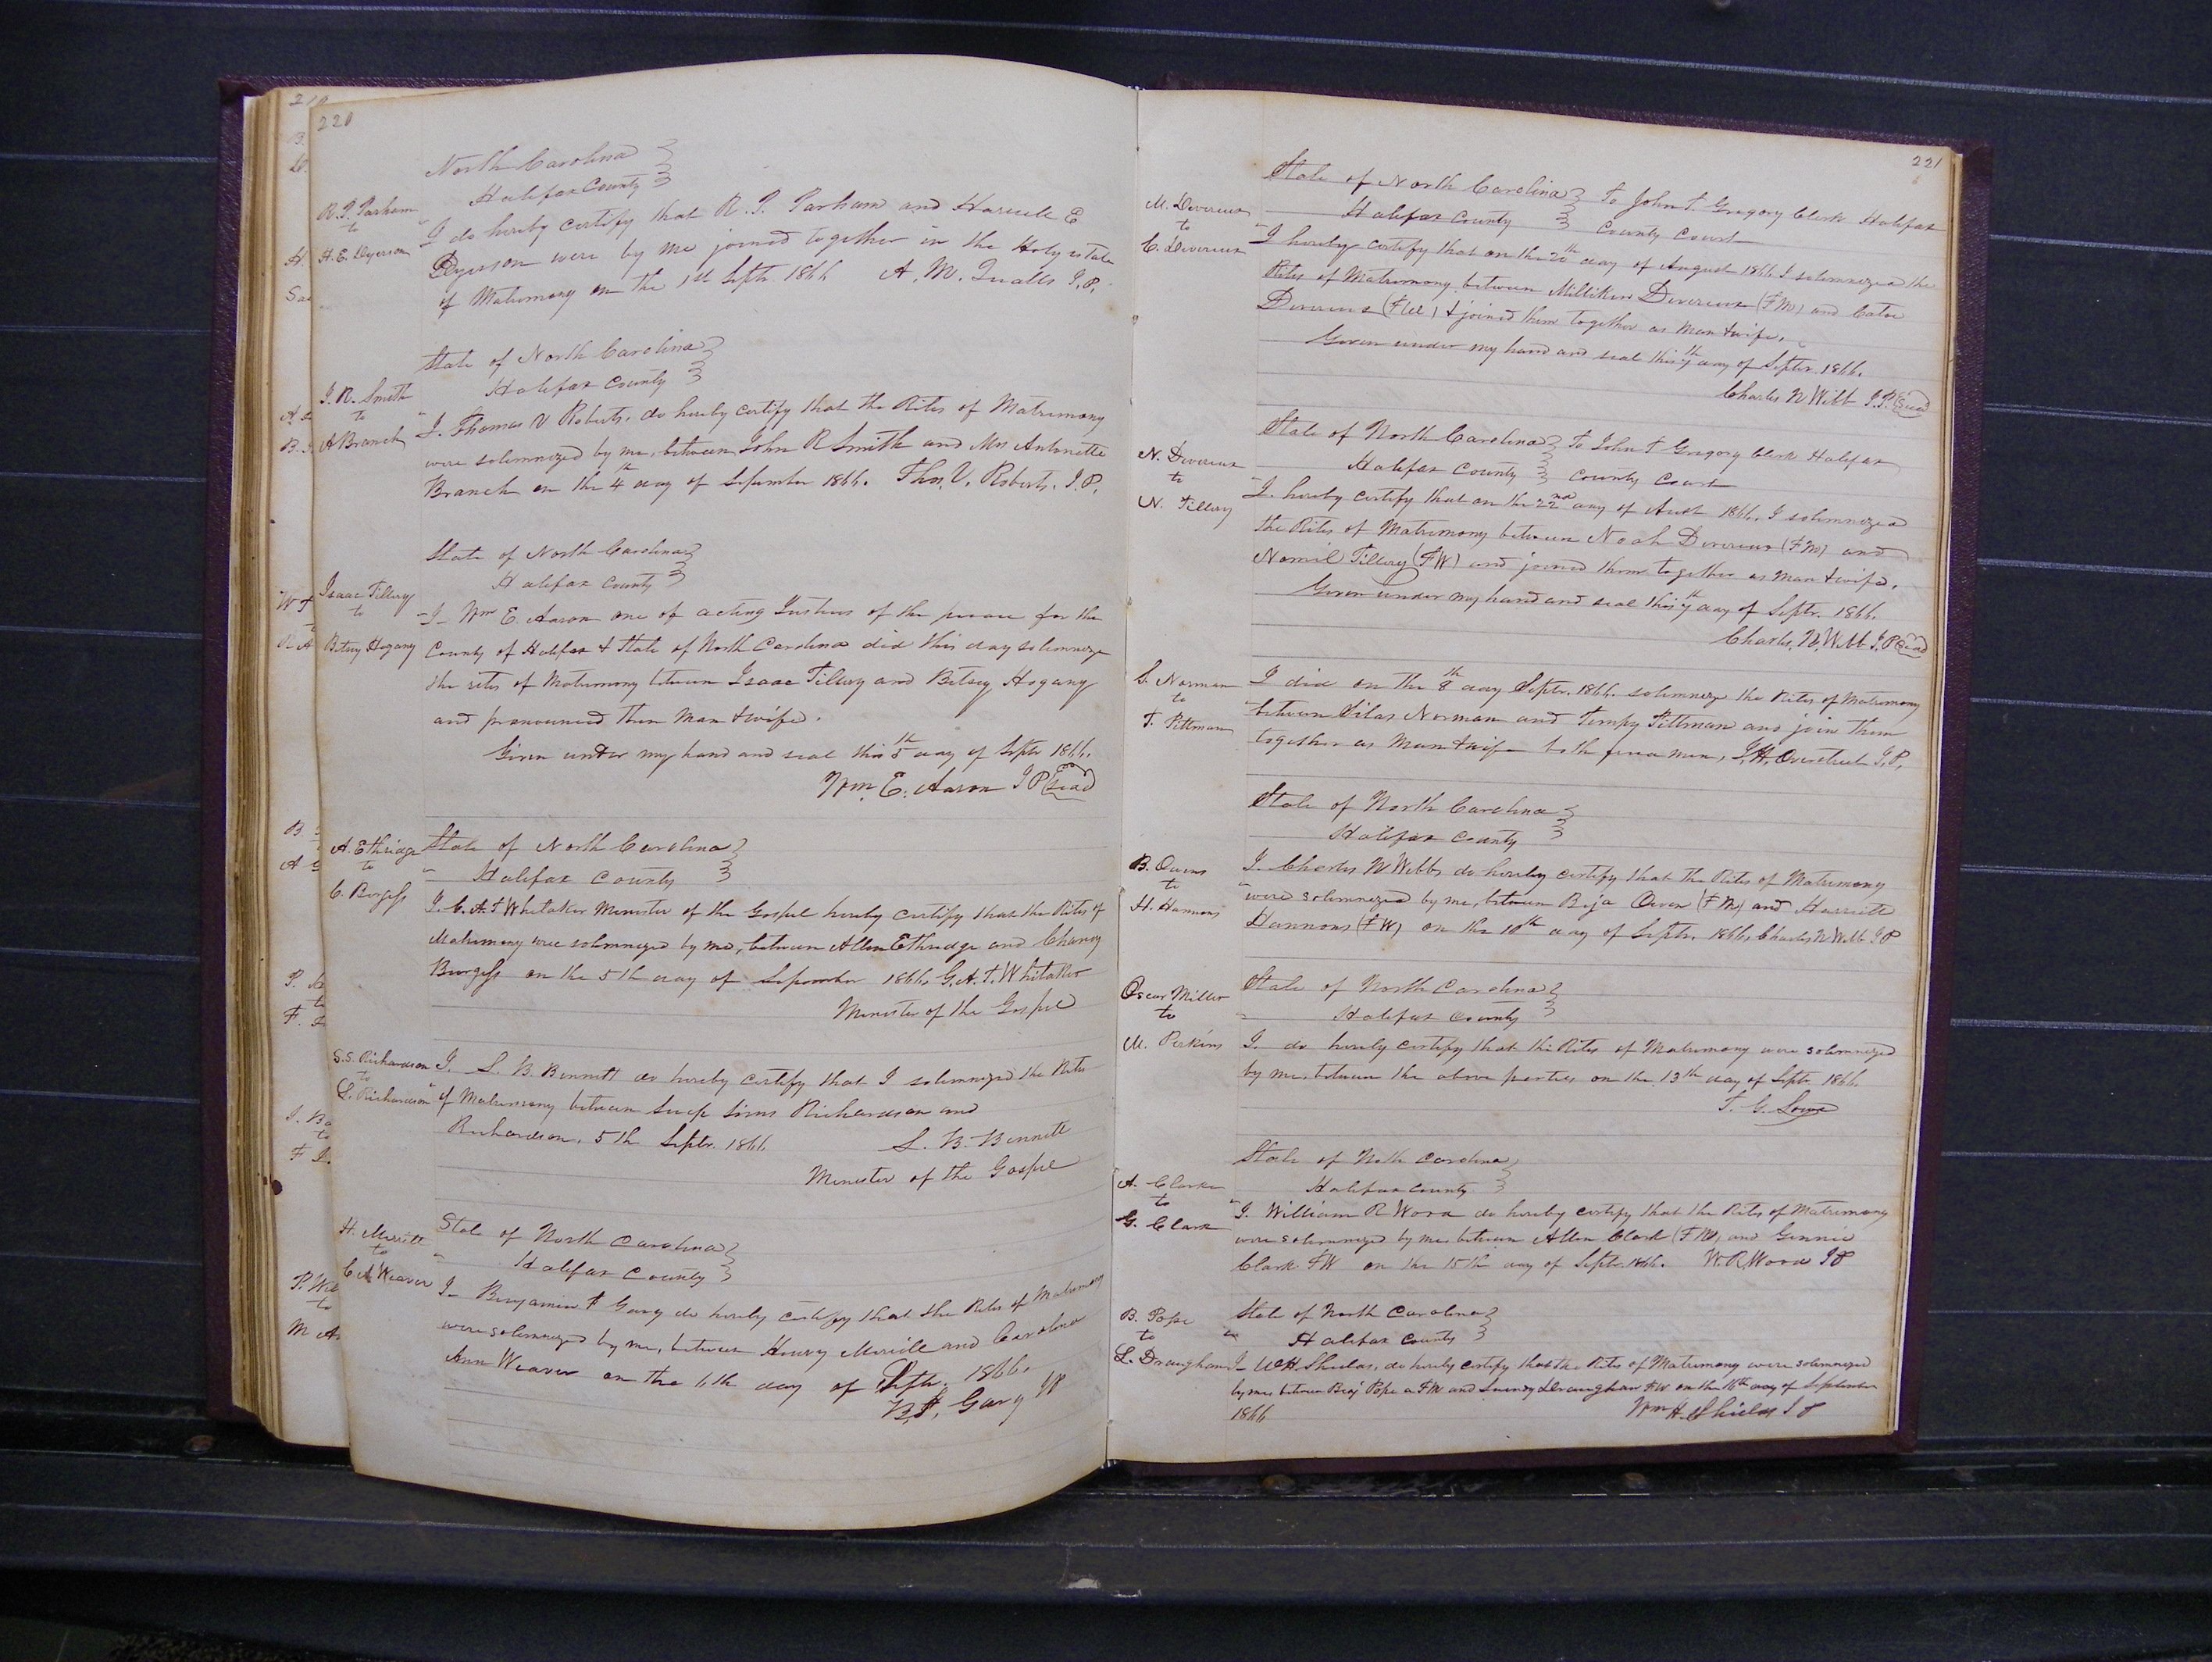 220
North Carolina
Halifax County
R. J. Parham
to
H. E. Dyerson
I do hereby certify that R. J. Parham and E
Dyerson were by me joined together in the Holy estate
of Matrimony on the 1st Septr. 1866 A. M. Qualls J. P.
State of North Carolina
Halifax County
J. R. Smith
to
A Branch
I. Thomas V Roberts, do hereby certify that the Rites of Matrimony
were solemnized by me, between John R Smith and Mrs Antonette
Branch on the 4th day of September 1866. Thos. V. Roberts. J. P.
State of North Carolina
Halifax County
Isaac Tillery
to
Betsey Hogany
I Wm E. Aaron one of acting Justices of the peace for the
County of Halifax & State of North Carolina did this day solemnize
the rites of Matrimony between Isaac Tillery and Betsey Hogany
and pronounced them Man & wife.
Given under my hand and seal this 5th day of Septr 1866.
Wm. E. Aaron J P Seal
A. Ethridge
to
C. Burgess
State of North Carolina
Halifax County
I. G. A. T Whitaker Minister of the Gospel hereby certify that the Rites of
Matrimony were solemnized by me, between Allen Ethridge and Chancy
Burgess on the 5th day of September 1866, G. A. T. Whitaker
Minister of the Gospel
S. S. Richardson
to
L. Richardson
I. L. B. Bennett do hereby certify that I solemnized the Rites
of Matrimony between Sims Richardson and
Richardson, 5th Septr. 1866 L. B. Bennett
Minister of the Gospel
State of North Carolina
Halifax County
H. Merritt
to
C A Weaver
I Benjamin F Gary do hereby certify that the Rites of Matrimony
were solemnized by me, between Henry and Carolina
Ann Weaver on the 6th day of Septr. 1866.
B. F. Gary JP
221
State of North Carolina To John T. Gregory Clerk Halifax
Halifax County County Court
M. Devereux
to
C. Devereux
I hereby certify that on the 20th day of August 1866 I solemnized the
Rites of Matrimony between Milliken Devereux (F M) and Catoe
Devereux & joined them together as Man & wife.
Given under my hand and seal this 7th day of Septr. 1866.
Charles N Webb J. P. Seal
State of North Carolina To John T Gregory Clerk Halifax
Halifax County County Court
N. Devereux
to
N. Tillery
I. hereby certify that on the 22nd day of Aust 1866. I solemnized
the Rites of Matrimony between Noah Devereux (F M) and
Tillery (F W) and joined them together as Man & wife.
Given under my hand and seal this 7th day of Septr. 1866.
Charles. N. Webb J. P Seal
S. Norman
to
T. Pittman
I did on the 8th day Septr. 1866. solemnize the Rites of Matrimony
between Silas Norman and Tempy Pittman and join them
together as Man & wife both men, J. H. Overstreet J. P.
State of North Carolina
Halifax County
B. Owens
to
H. Hannons
I. Charles N Webb, do hereby certify that the Rites of Matrimony
were solemnized by me, between Beja Owen (F M) and Harriett
Hannons (F W) on the 10th day of Septr. 1866, Charles N Webb J P
State of North Carolina
Halifax County
Oscar Miller
to
M. Perkins
I. do hereby certify that the Rites of Matrimony were solemnized
by me, between the above parties on the 13th day of Septr. 1866
T. G. Lowe
State of North Carolina
Halifax County
A. Clarke
to
G. Clark
I. William R Wood do hereby certify that the Rites of Matrimony
were solemnized by me between Allen Clark (F M) and Ginnie
Clark F W on the 15th day of Septr. 1866. W. R. Wood J P
State of North Carolina
Halifax County
B. Pope
to
L. Draughan
I W H Shields, do hereby certify that the Rites of Matrimony were solemnized
by me, between Benj Pope a F M and Draughan F W on the 16th day of September
1866 Wm H. Shields J P